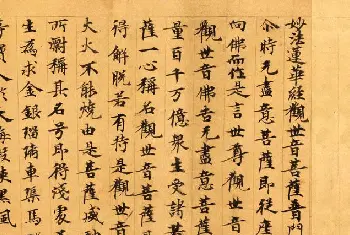 妙法蓮華經觀世音菩薩普門
尒時无盡意菩薩即從座
向佛而作是言世尊觀世
觀世音佛告无盡意菩薩
量百千万億衆生受諸苦
薩一心稱名觀世音菩薩
得解脫若有持是觀世音
大火不能燒由是菩薩威
所漂稱其名号即得淺處
生為求金銀瑠璃車𤦲馬
海 黑風